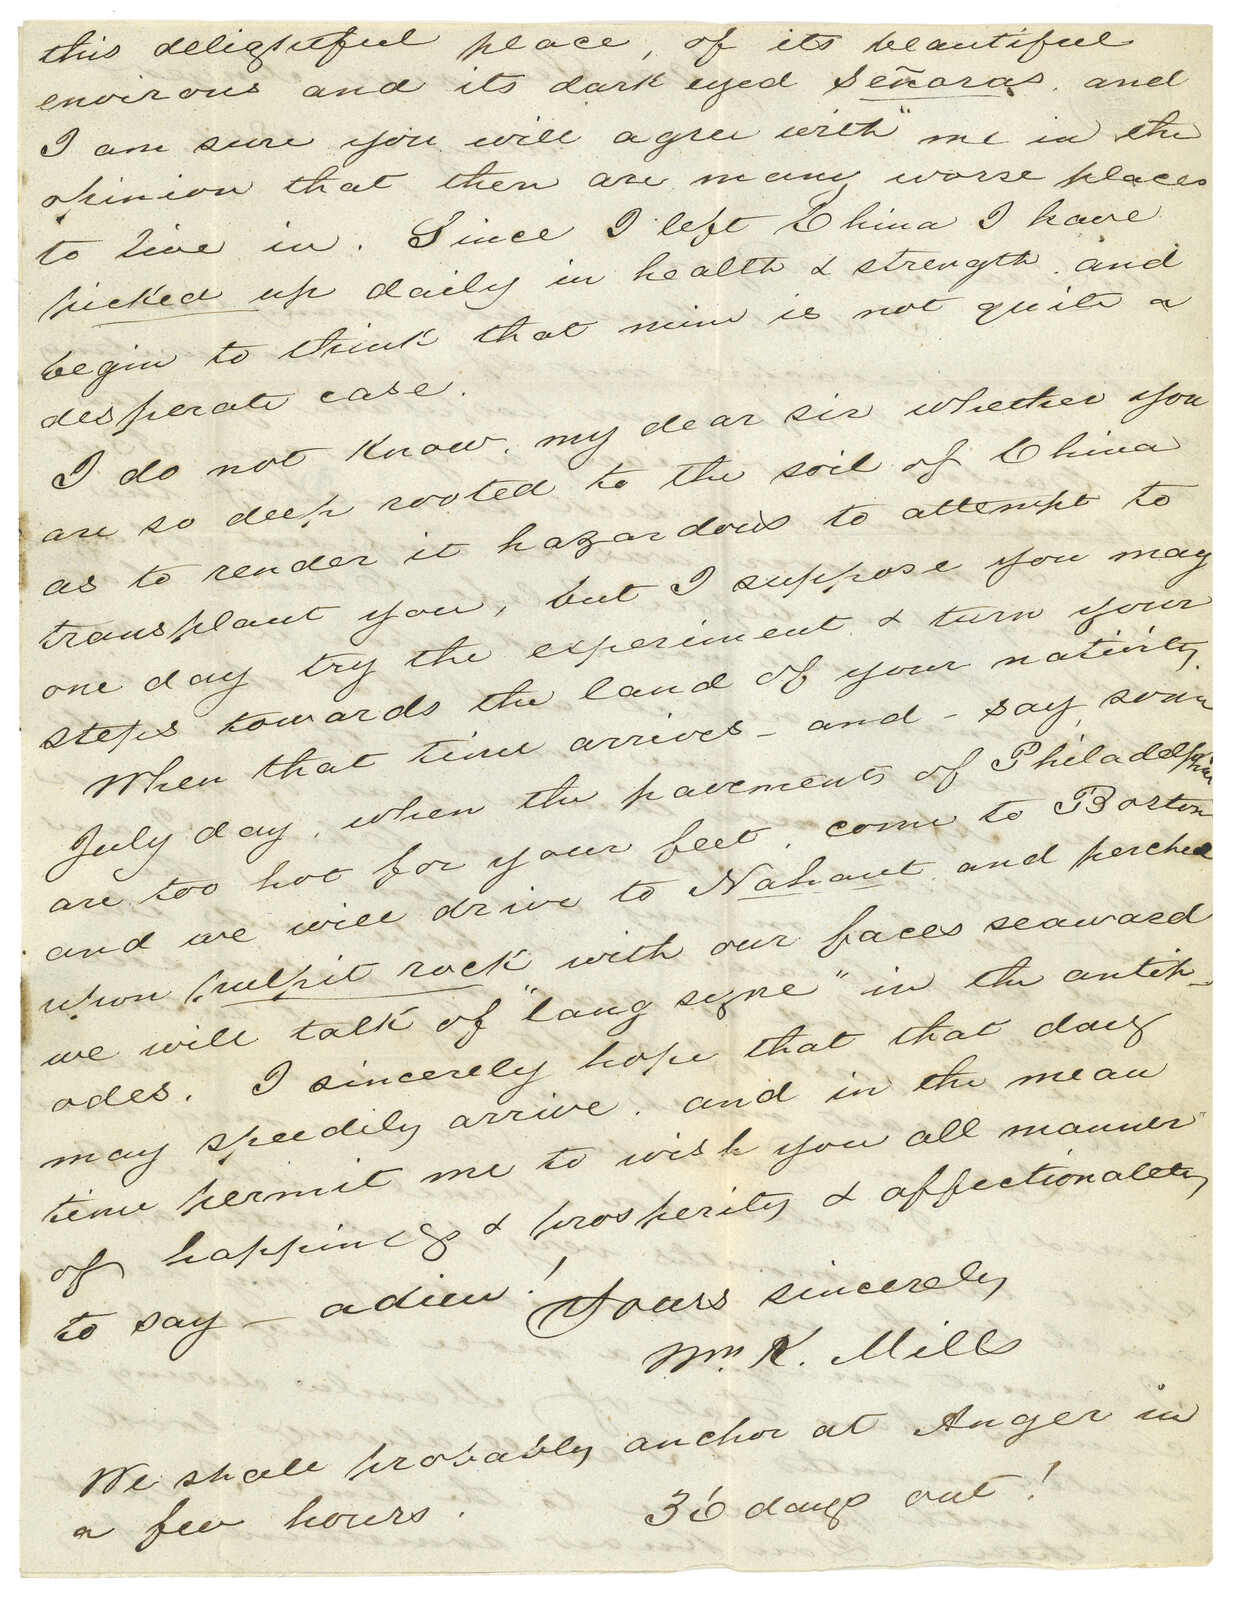 this delightful place, of its beautiful
environs and its dark eyed Señoras. and
I am sure you will agree with me in the
opinion that there are many worse places
to live in. Since I left China I have
picked up daily in health & strength. and
begin to think that mine is not quite a
desperate case.
I do not know, my dear sir whether you
are so deep rooted to the soil of China
as to render it hazardous to attempt to
transplant you, but I suppose you may
one day try the experiment & turn your
steps towards the land of your nativity.
When that time arrives - and - say, some
July day, when the pavements of Philadelphia
are too hot for your feet, come to Boston
and we will drive to Nahant and perched
upon pulpit rock with our faces seaward
we will talk of "lang syne" in the antip-
odes. I sincerely hope that that day
may speedily arrive. and in the mean
time permit me to wish you all manner
of happiness & prosperity & affectionately
to say - adieu!
Yours sincerely
Wm K. Mills
We shall probably anchor at Anger in
a few hours. 36 days out!